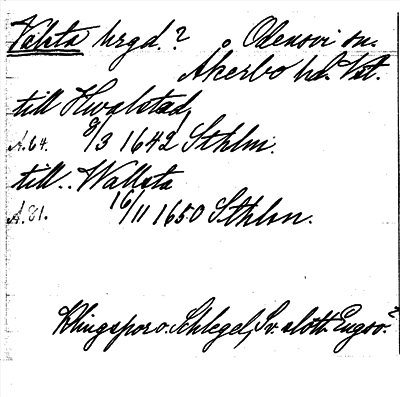 Valsta hrgd.? Odensvi sn.
Åkerbo hd. Vstl.
till Hwalstad
A.64. 9/3 1642 Sthlm.
till.. Wallsta
A.81. 16/11 1650 Sthlm.
Klingspor o. Schlegel, Sv. slott. Engsö.?